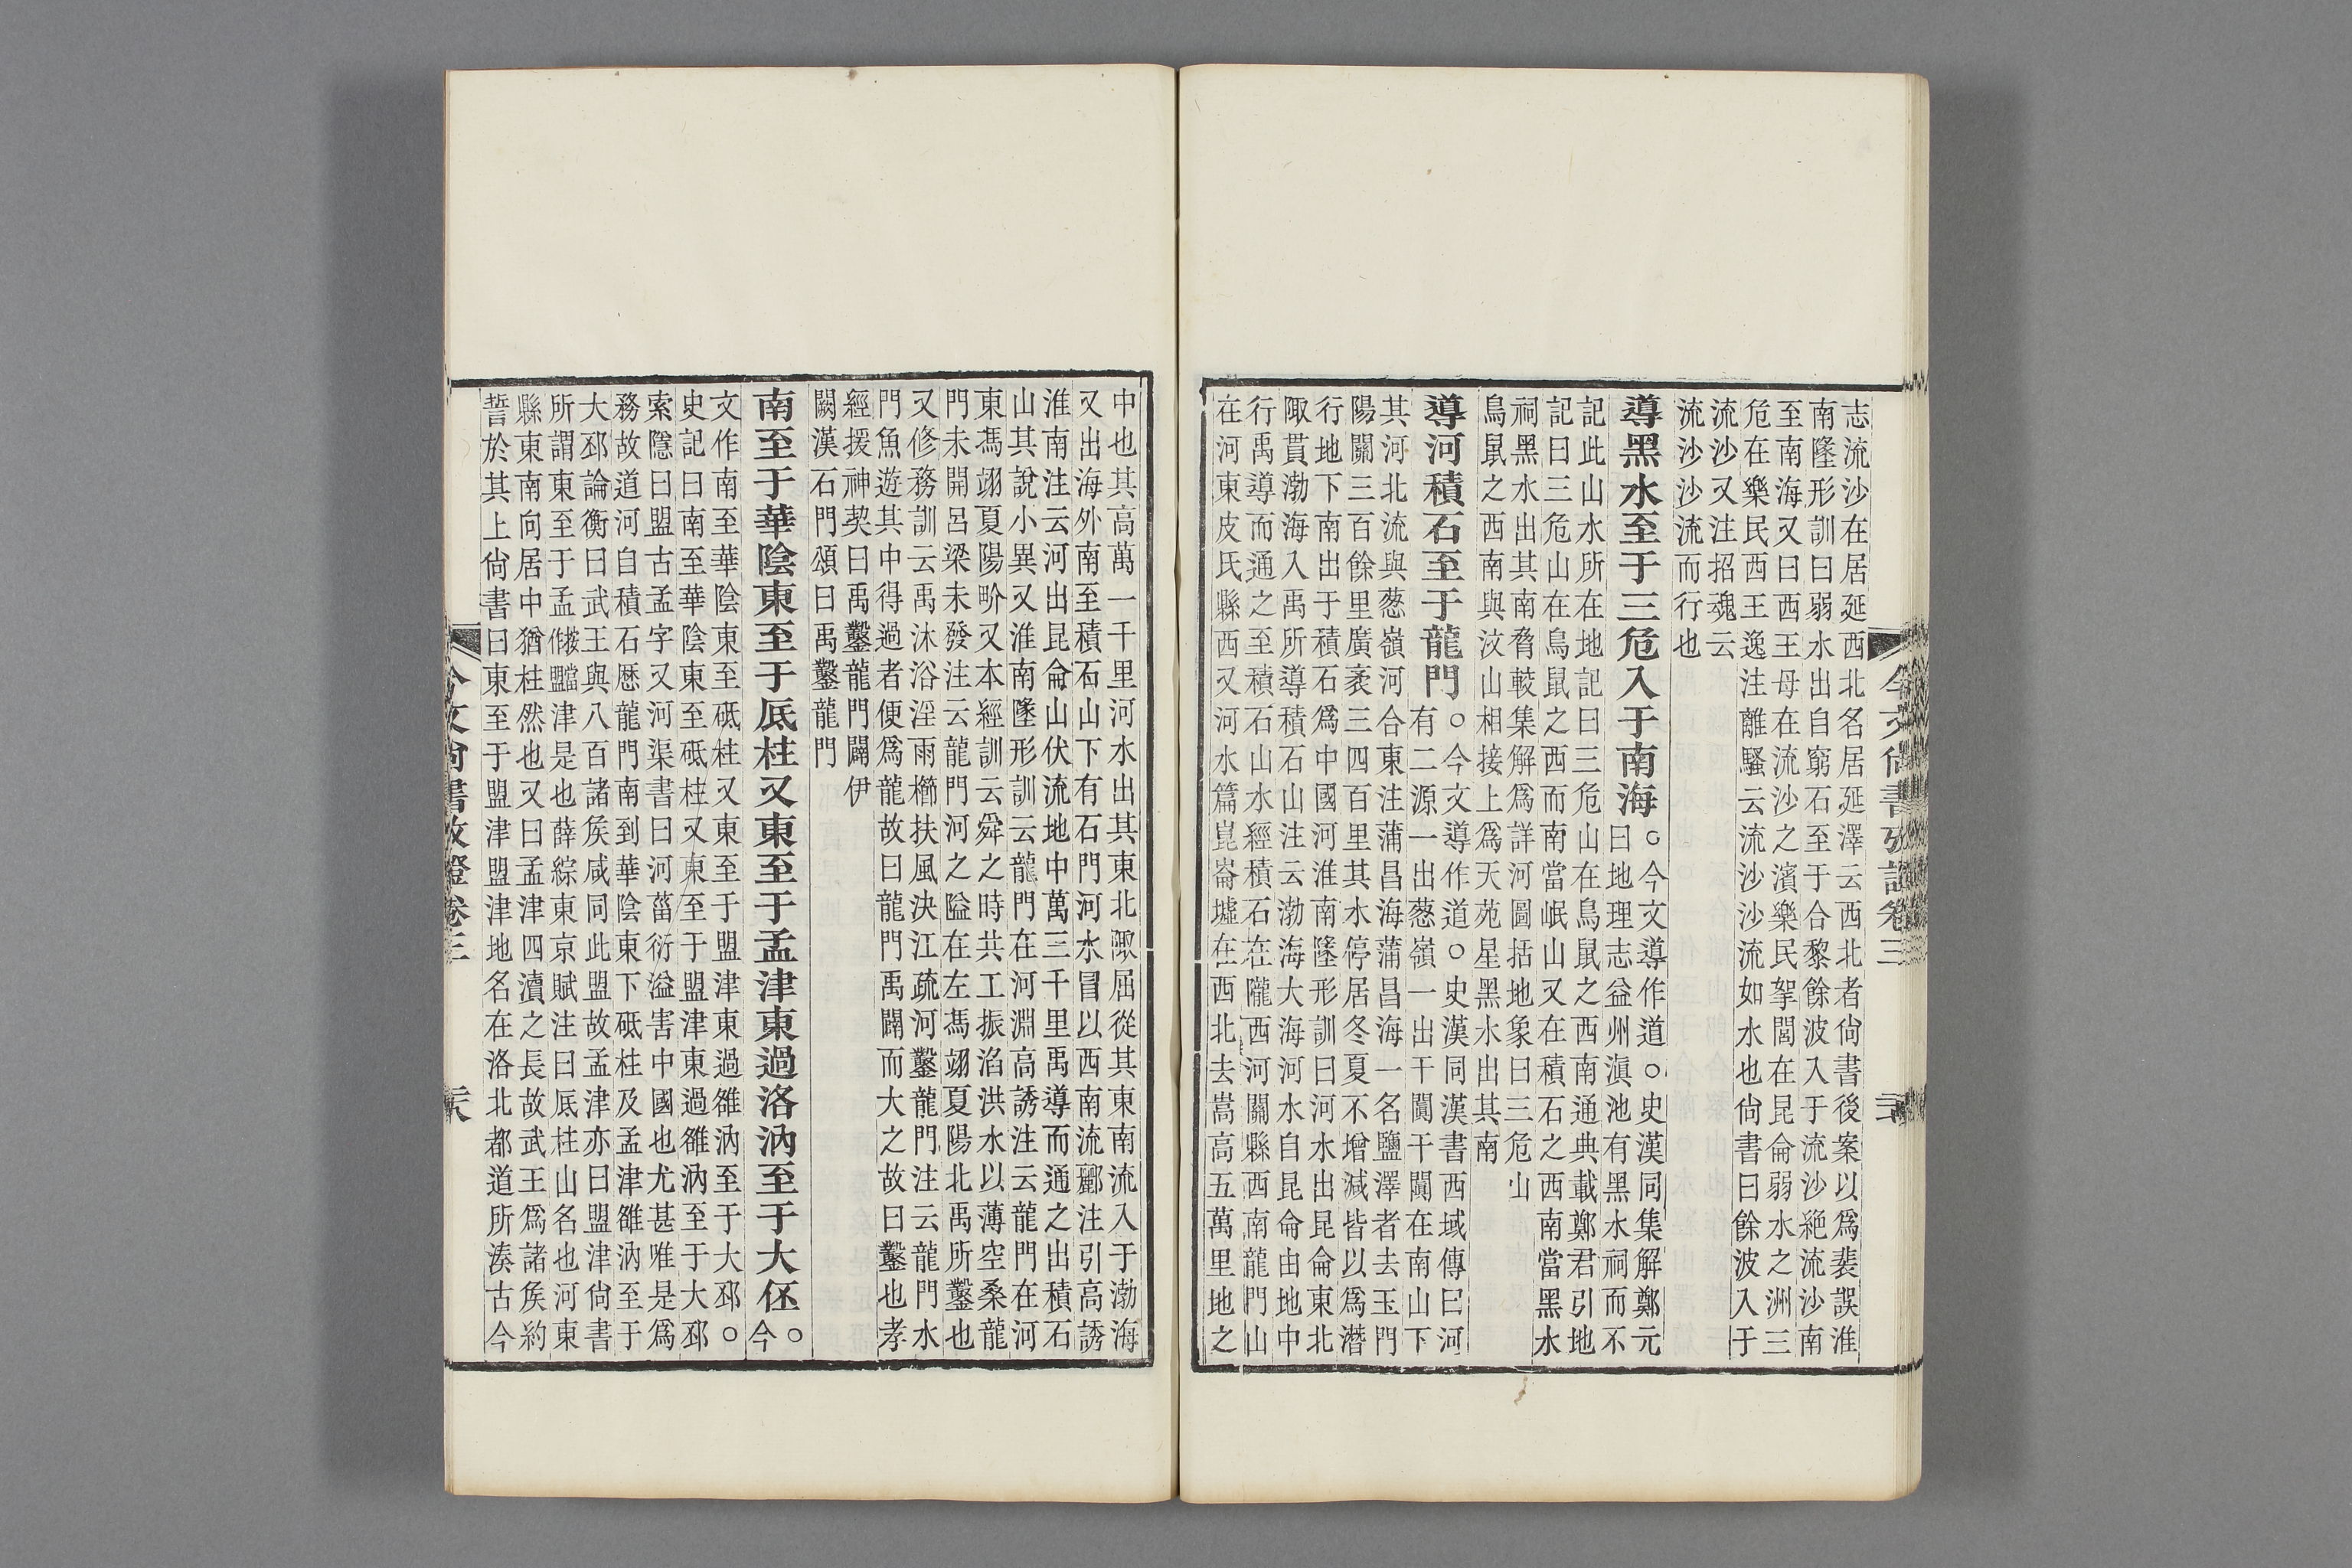 今文尚書攷證卷三
志流沙在居延西北名居延澤云西北者尙書後案以爲裴誤淮
南隆形訓曰弱水出自窮石至于合黎餘波入于流沙絶流沙南
至南海又曰西王母在流沙之濱樂民挐閭在昆侖弱水之洲三
危在樂民西王逸注離騷云流沙沙流如水也尙書曰餘波入于
流沙又注招魂云
流沙沙流而行也
導黑水至于三危入于南海○今文導作道○史漢同集解鄭元
曰地理志益州滇池有黑水祠而不
記此山水所在地記曰三危山在鳥鼠之西南通典載鄭君引地
記曰三危山在鳥鼠之西而南當岷山又在積石之西南當黑水
祠黑水出其南脅較集解爲詳河圖括地象曰三危山
鳥鼠之西南與汶山相接上爲天苑星黑水出其南
導河積石至于龍門○今文導作道○史漢同漢書西域傳曰河
有二源一出蔥嶺一出于闐于闐在南山下
其河北流與蔥嶺河合東注蒲昌海蒲昌海一名鹽澤者去玉門
陽關三百餘里廣袤三四百里其水停居冬夏不增減皆以爲潛
行地下南出于積石爲中國河淮南隆形訓曰河水出昆侖東北
陬貫渤海入禹所導積石山注云渤海大海河水自昆侖由地中
行禹導而通之至積石山水經積石在隴西河關縣西南龍門山
在河東皮氏縣西又河水篇崑崙墟在西北去嵩高五萬里地之
中也其高萬一千里河水出其東北陬屈從其東南流入于渤海
又出海外南至積石山下有石門河水冒以西南流酈注引高誘
淮南注云河出昆侖山伏流地中萬三千里禹導而通之出積石
山其說小異又淮南墬形訓云龍門在河淵高誘注云龍門在河
東馮翊夏陽畍又本經訓云舜之時共工振滔洪水以薄空桑龍
門未開呂梁未發注云龍門河之隘在左馮翊夏陽北禹所鑿也
又修務訓云禹沐浴淫雨櫛扶風決江疏河鑿龍門注云龍門水
門魚遊其中得過者便爲龍故曰龍門禹闢而大之故曰鑿也孝
經援神契曰禹鑿龍門闢伊
闕漢石門頌曰禹鑿龍門
南至于華陰東至于厎柱又東至于孟津東過洛汭至于大伾○
今
文作南至華陰東至砥柱又東至于盟津東過雒汭至于大邳○
史記曰南至華陰東至砥柱又東至于盟津東過雒汭至于大邳
索隱曰盟古孟字又河渠書曰河菑衍溢害中國也尤甚唯是爲
務故道河自積石歷龍門南到華陰東下砥柱及孟津雒汭至于
大邳論衡曰武王與八百諸矦咸同此盟故孟津亦曰盟津尙書
所謂東至于孟津是也薛綜東京賦注曰厎柱山名也河東
縣東南向居中猶柱然也又曰孟津四瀆之長故武王爲諸矦約
誓於其上尙書曰東至于盟津盟津地名在洛北都道所湊古今
今文尚書攷證卷三